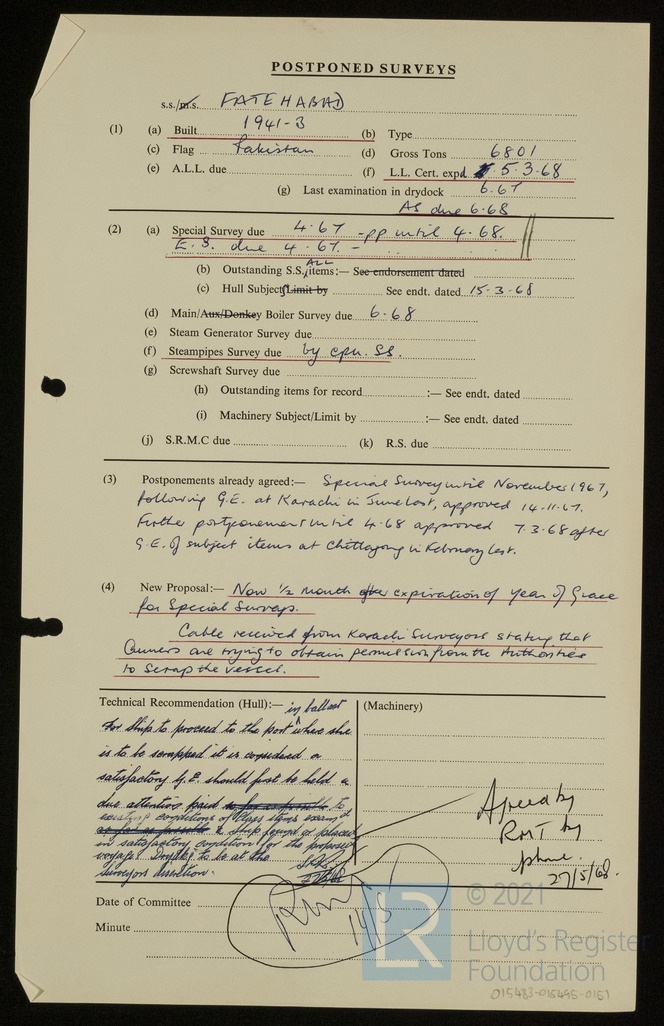 POSTPONED SURVEYS
s.s./m.s. FATEHABAD
(1) (a) Built 1941-3 (b) Type
(c) Flag Pakistan (d) Gross Tons 6801
(e) A.L.L. due (f) L.L. Cert. expd. 5.3.68
(g) Last examination in drydock 6.67
AS due 6.68
(2) (a) Special Survey due 4.67 - pp until 4.68.
E.S. due 4.67. -
(b) Outstanding S.S. ALL items:— See endorsement dated
(c) Hull Subject/Limit by See endt. dated 15.3.68
(d) Main/Aux/Donkey Boiler Survey due 6.68
(e) Steam Generator Survey due
(f) Steampipes Survey due by cpn. SS.
(g) Screwshaft Survey due
(h) Outstanding items for record :— See endt. dated
(i) Machinery Subject/Limit by :— See endt. dated
(j) S.R.M.C due (k) R.S. due
(3) Postponements already agreed:— Special Survey until November 1967,
following G.E. at Karachi in June last, approved 14.11.67.
Further postponement until 4.68 approved 7.3.68 after
G.E. of subject items at Chittagong in February last.
(4) New Proposal:— Now 1/2 month after expiration of year of Grace
for Special Surveys.
Cable received from Karachi Surveyors stating that
Owners are trying to obtain permission from the Authorities
to scrap the vessel.
Technical Recommendation (Hull):— in ballast (Machinery)
For ship to proceed to the port where she
is to be scrapped it is considered a
satisfactory G.E. should first be held &
due attention paid to for as possible to
existing conditions of
as far as possible & ship found or placed
in satisfactory condition for the proposed
voyage. Drydkg to be at the
Surveyors discretion.
Agreed by
RMT by
phone.
27/5/68.
Date of Committee
14/5
Minute
© 2021
LR
Lloyd's Register
Foundation
015483-015495-0151